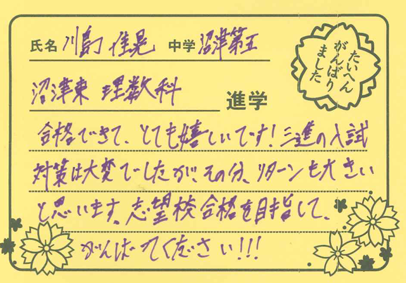 氏名 川島 佳晃 中学 沼津第五
たいへん
がんばり
ました
沼津東 理数科 進学
合格できて、とても嬉しいです!三進の入試
対策は大変でしたがその分、リターンも大きい
と思います。志望校合格を目指して、
がんばってください!!!